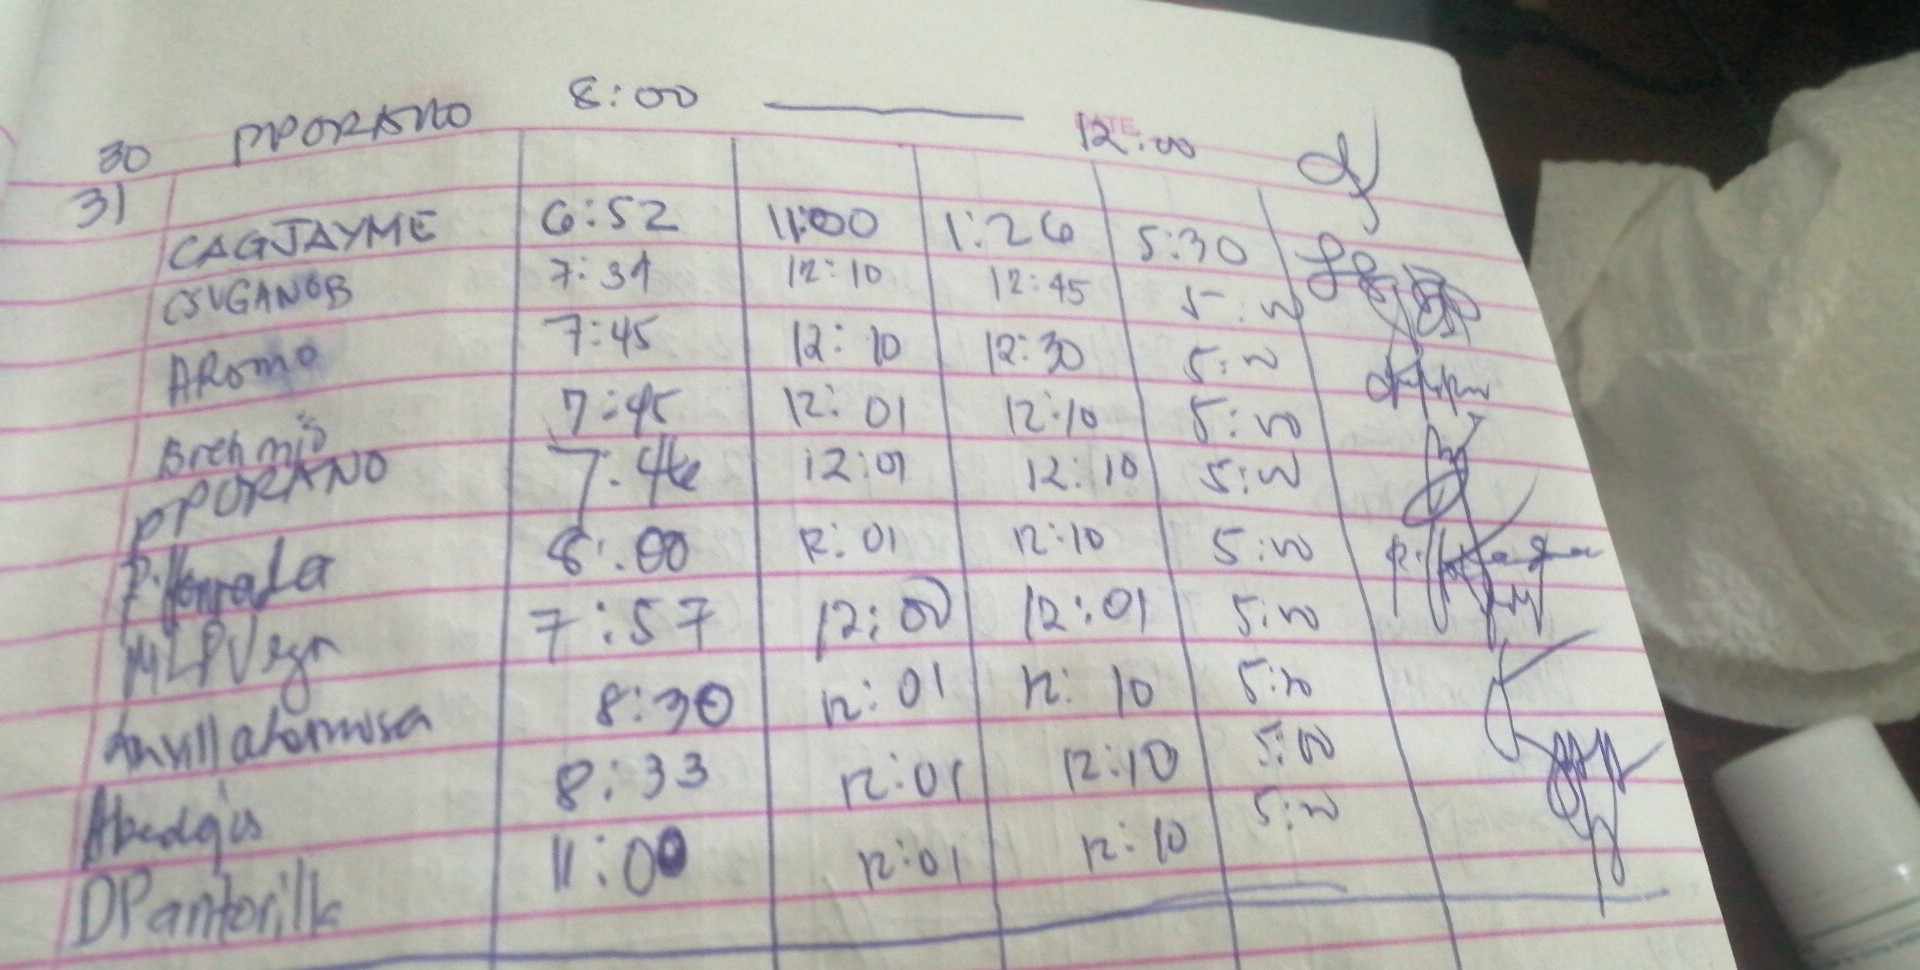 30 PPORANO 8:00 12:00
31
CAGJAYME 6:52 11:00 1:26 5:30
CSUGANOB 7:31 12:10 12:45 5:00
ARomo 7:45 12:10 12:30 5:00
7:45 12:01 12:10 5:00
PPORANO 7:46 12:01 12:10 5:00
8:00 12:01 12:10 5:00
MLPVega 7:57 12:00 12:01 5:00
Anvillahermosa 8:30 12:01 12:10 5:00
8:33 12:01 12:10 5:00
DPantorilla 11:00 12:01 12:10 5:00